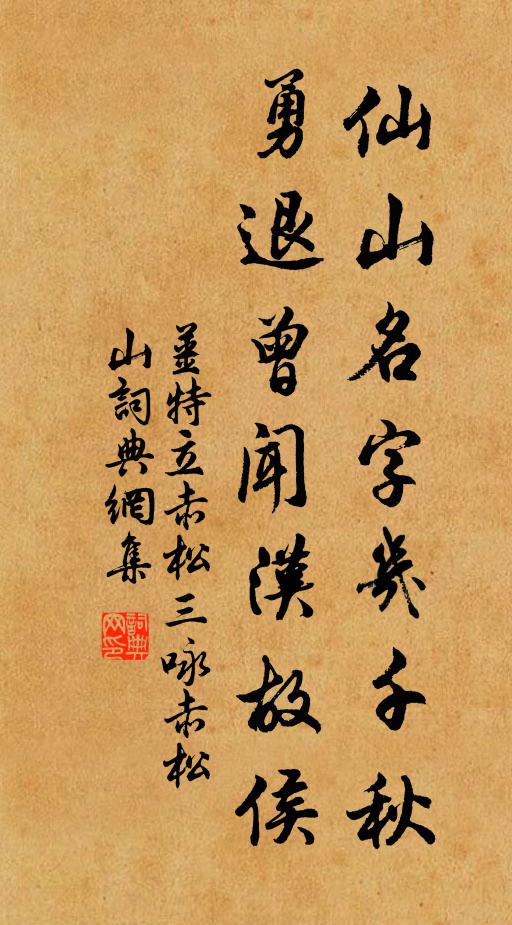 仙山名字幾千秋
勇退曾聞漢故侯
姜特立赤松三咏赤松
山詞典網集
詞典
网印